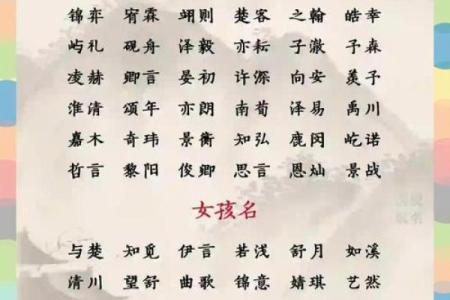 锦弈 宥霖 翊则 楚客 之翰 皓幸
屿礼 砚舟 泽毅 亦耘 子澈 子森
凌赫 卿言 晏初 许深 向安 羡予
淮清 颂年 亦朗 南荀 泽易 禹川
嘉木 奇玮 景衡 知弘 鹿闵 屹诺
哲言 黎阳 俊卿 思言 恩灿 景战
女孩名
与楚 知觅 伊言 若浅 舒月 如溪
清川 望舒 曲歌 锦意 婧琪 艺然